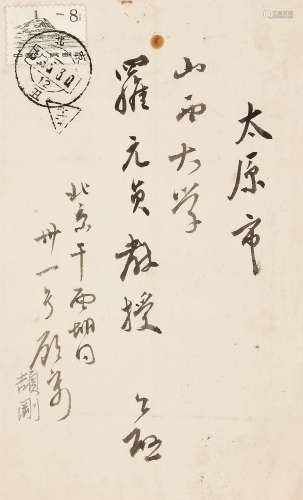 太原市
山西大学
羅元貞教授 公啟
北京干面胡同
卅一号顧寄
頡剛
8
北京